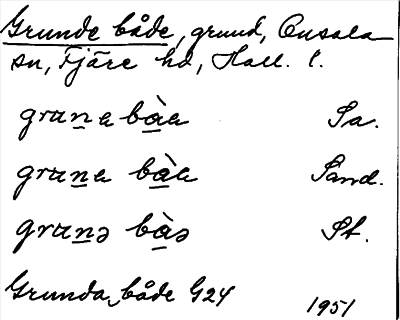 Grunde både, grund, Onsala
sn, Fjäre hd, Hall. l.
gruna bàa Sa.
gruna bàa Sand.
grunə bàə St.
Grunda både G24 1951